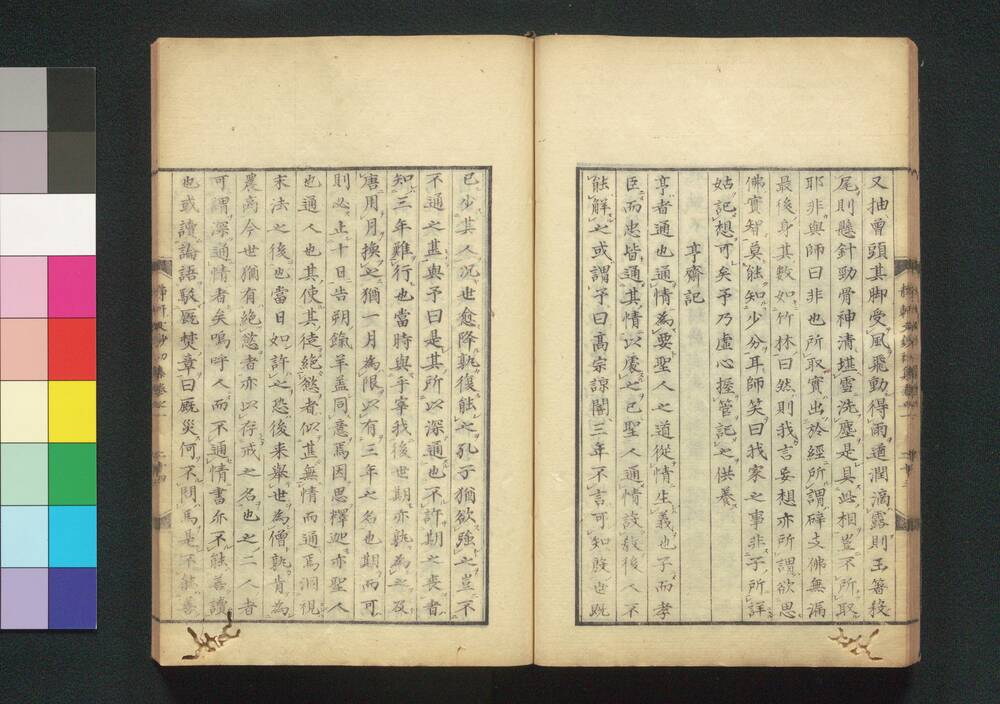 又抽曽頭其脚受風飛動得雨道潤滴露則玉簪發
尾則懸針勁骨神清堪雪洗塵是具此相豈不所取
耶非與師曰非也所取實出於經所謂辟支佛無漏
最後身其數如竹林曰然則我言妄想亦所謂欲思
佛實智莫能知少分耳師笑曰我家之事非子所詳
姑記想可矣予乃虛心握管記之供養
亨齋記
亨者通也通情為要聖人之道從情生義也子而孝
臣而忠皆通其情以處之已聖人通情設教後人不
能解之或謂予曰高宗諒闇三年不言可知殷也既
已少其人况世愈降孰復能之孔子猶欲強之豈不
不通之甚與予曰是其所以深通也不許期之喪者
知三年難行也當時與乎宰我後世期亦孰為之及
唐用月換之猶一月為限以有三年之名也期而可
則必止十日告朔餼羊盖同意焉因思釋迦亦聖人
也通人也其使其徒絶慾者似甚無情而通焉洞視
末法之後也當日如許之恐後来舉世為僧孰肯為
農商今世猶有絶慾者亦以存戒之名也之二人者
可謂深通情者矣嗚呼人而不通情書亦不能善讀
也或讀論語駁厩焚章曰厩災何不問馬是不能善